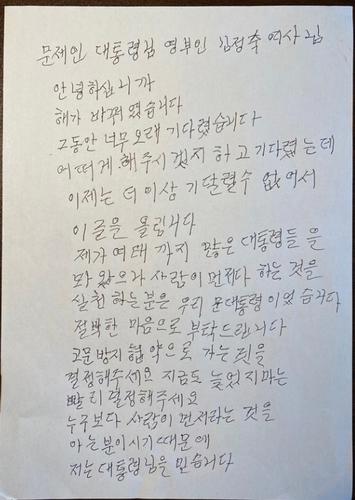 문제인 대통령님 영부인 김정축 여사님
안녕하십니까
해가 바꿔 였습니다
그동안 너무 오래 기다렸습니다
어떠게 해주시겠지 하고 기다렸는데
이제는 더이상 기달렬수 없어서
이글을 올립니다
제가 여태 까지 많은 대통령들 을
보와 왔으나 사람이 먼저다 하는 것을
실천 하는분은 우리 문대통령 이었습니다
절박한 마음으로 부탁드립니다
고문방지 협약으로 가는 것을
결정해주세요 지금도 늦었지마는
빨리 결정해주세요
누구보다 사람이 먼저라는 것을
아는분이시기 때문에
저는 대통령님을 믿습니다